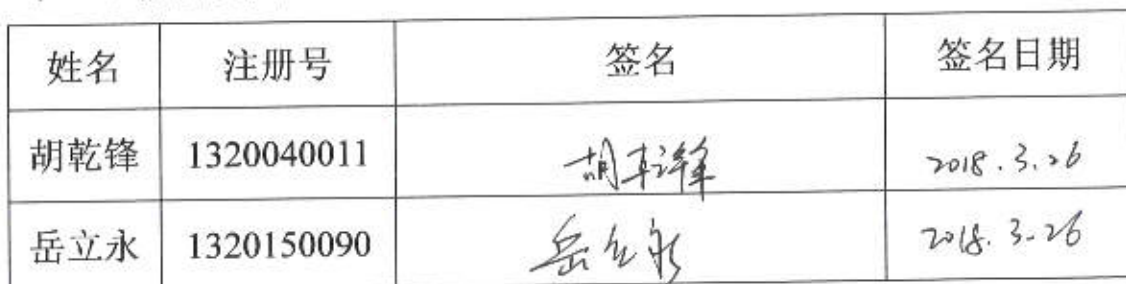 姓名 注册号 签名 签名日期
胡乾锋 1320040011 胡乾锋 2018.3.26
岳立永 1320150090 岳立永 2018.3.26